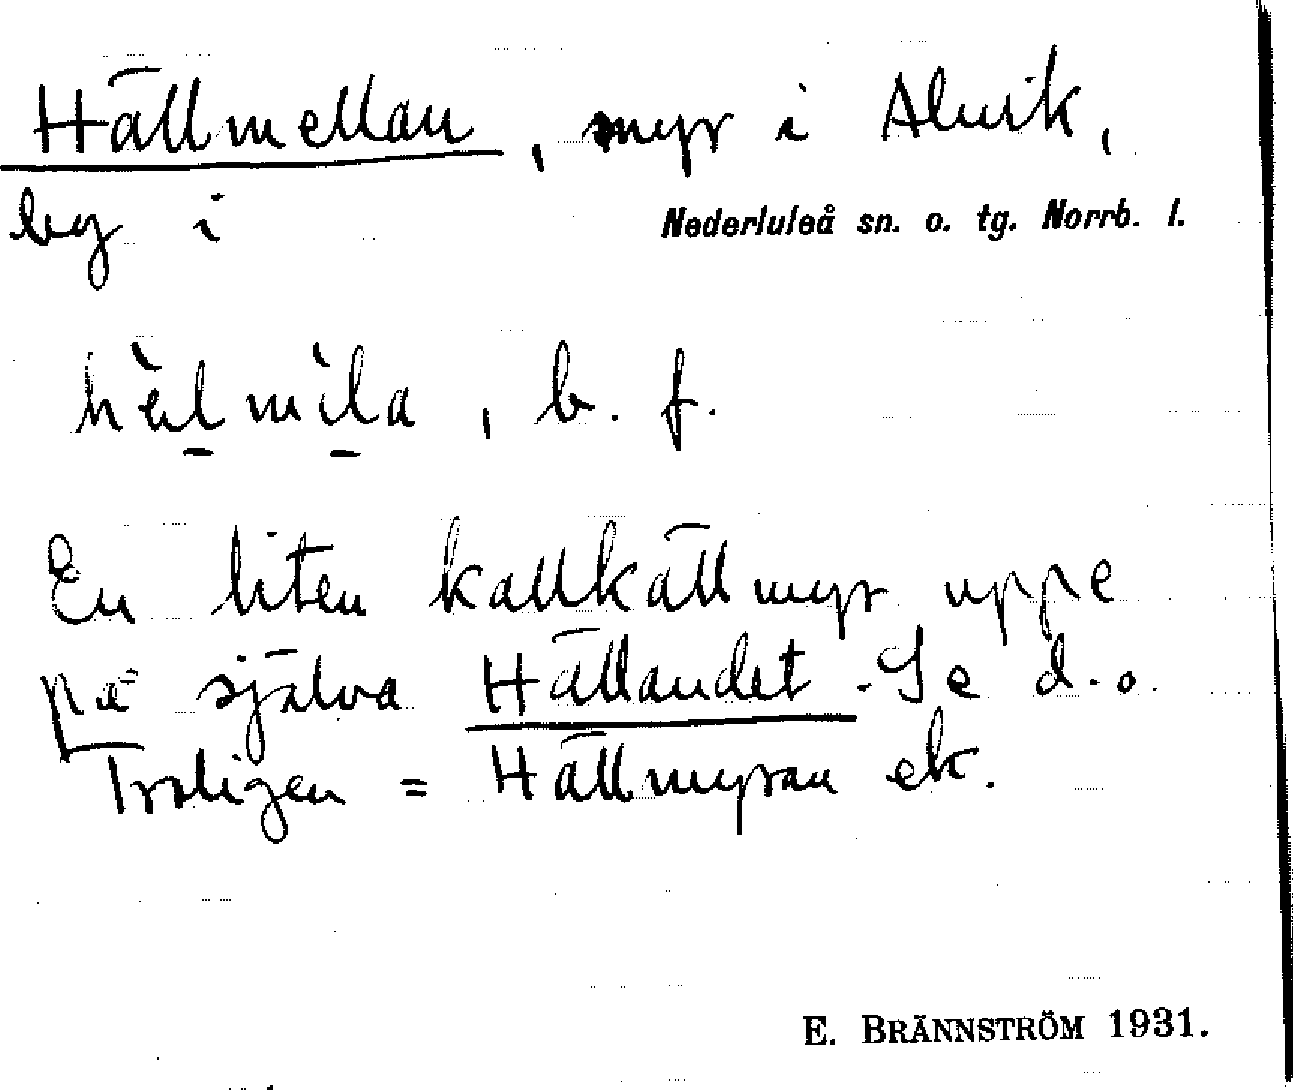 Hällmellan, myr i Alvik,
by i Nederluleå sn. o. tg. Norrb. l.
hèlmìla, b. f.
En liten kallkällmyr uppe
på själva Hällandet. Se d.o.
Troligen = Hällmyran ek.
E. BRÄNNSTRÖM 1931.